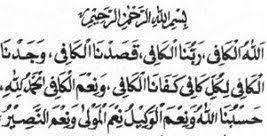 بِسْمِ اللهِ الرَّحْمٰنِ الرَّحِيْمِ
اَللهُ الْكَافِى، رَبُّنَا الْكَافِى، قَصَدْنَا الْكَافِى، وَجَدْنَا
الْكَافِى لِكُلِّ كَافِى كَفَانَا الْكَافِى، وَنِعْمَ الْكَافِى اَلْحَمْدُ لِلّٰهِ،
حَسْبُنَا اللهُ وَنِعْمَ الْوَكِيْلُ نِعْمَ الْمَوْلٰى وَنِعْمَ النَّصِيْرُ